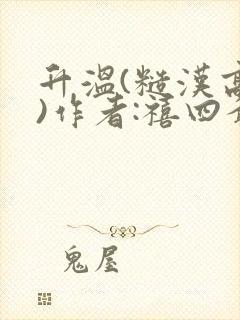 升温(糙漢高
)作者:禧四爷
鬼屋